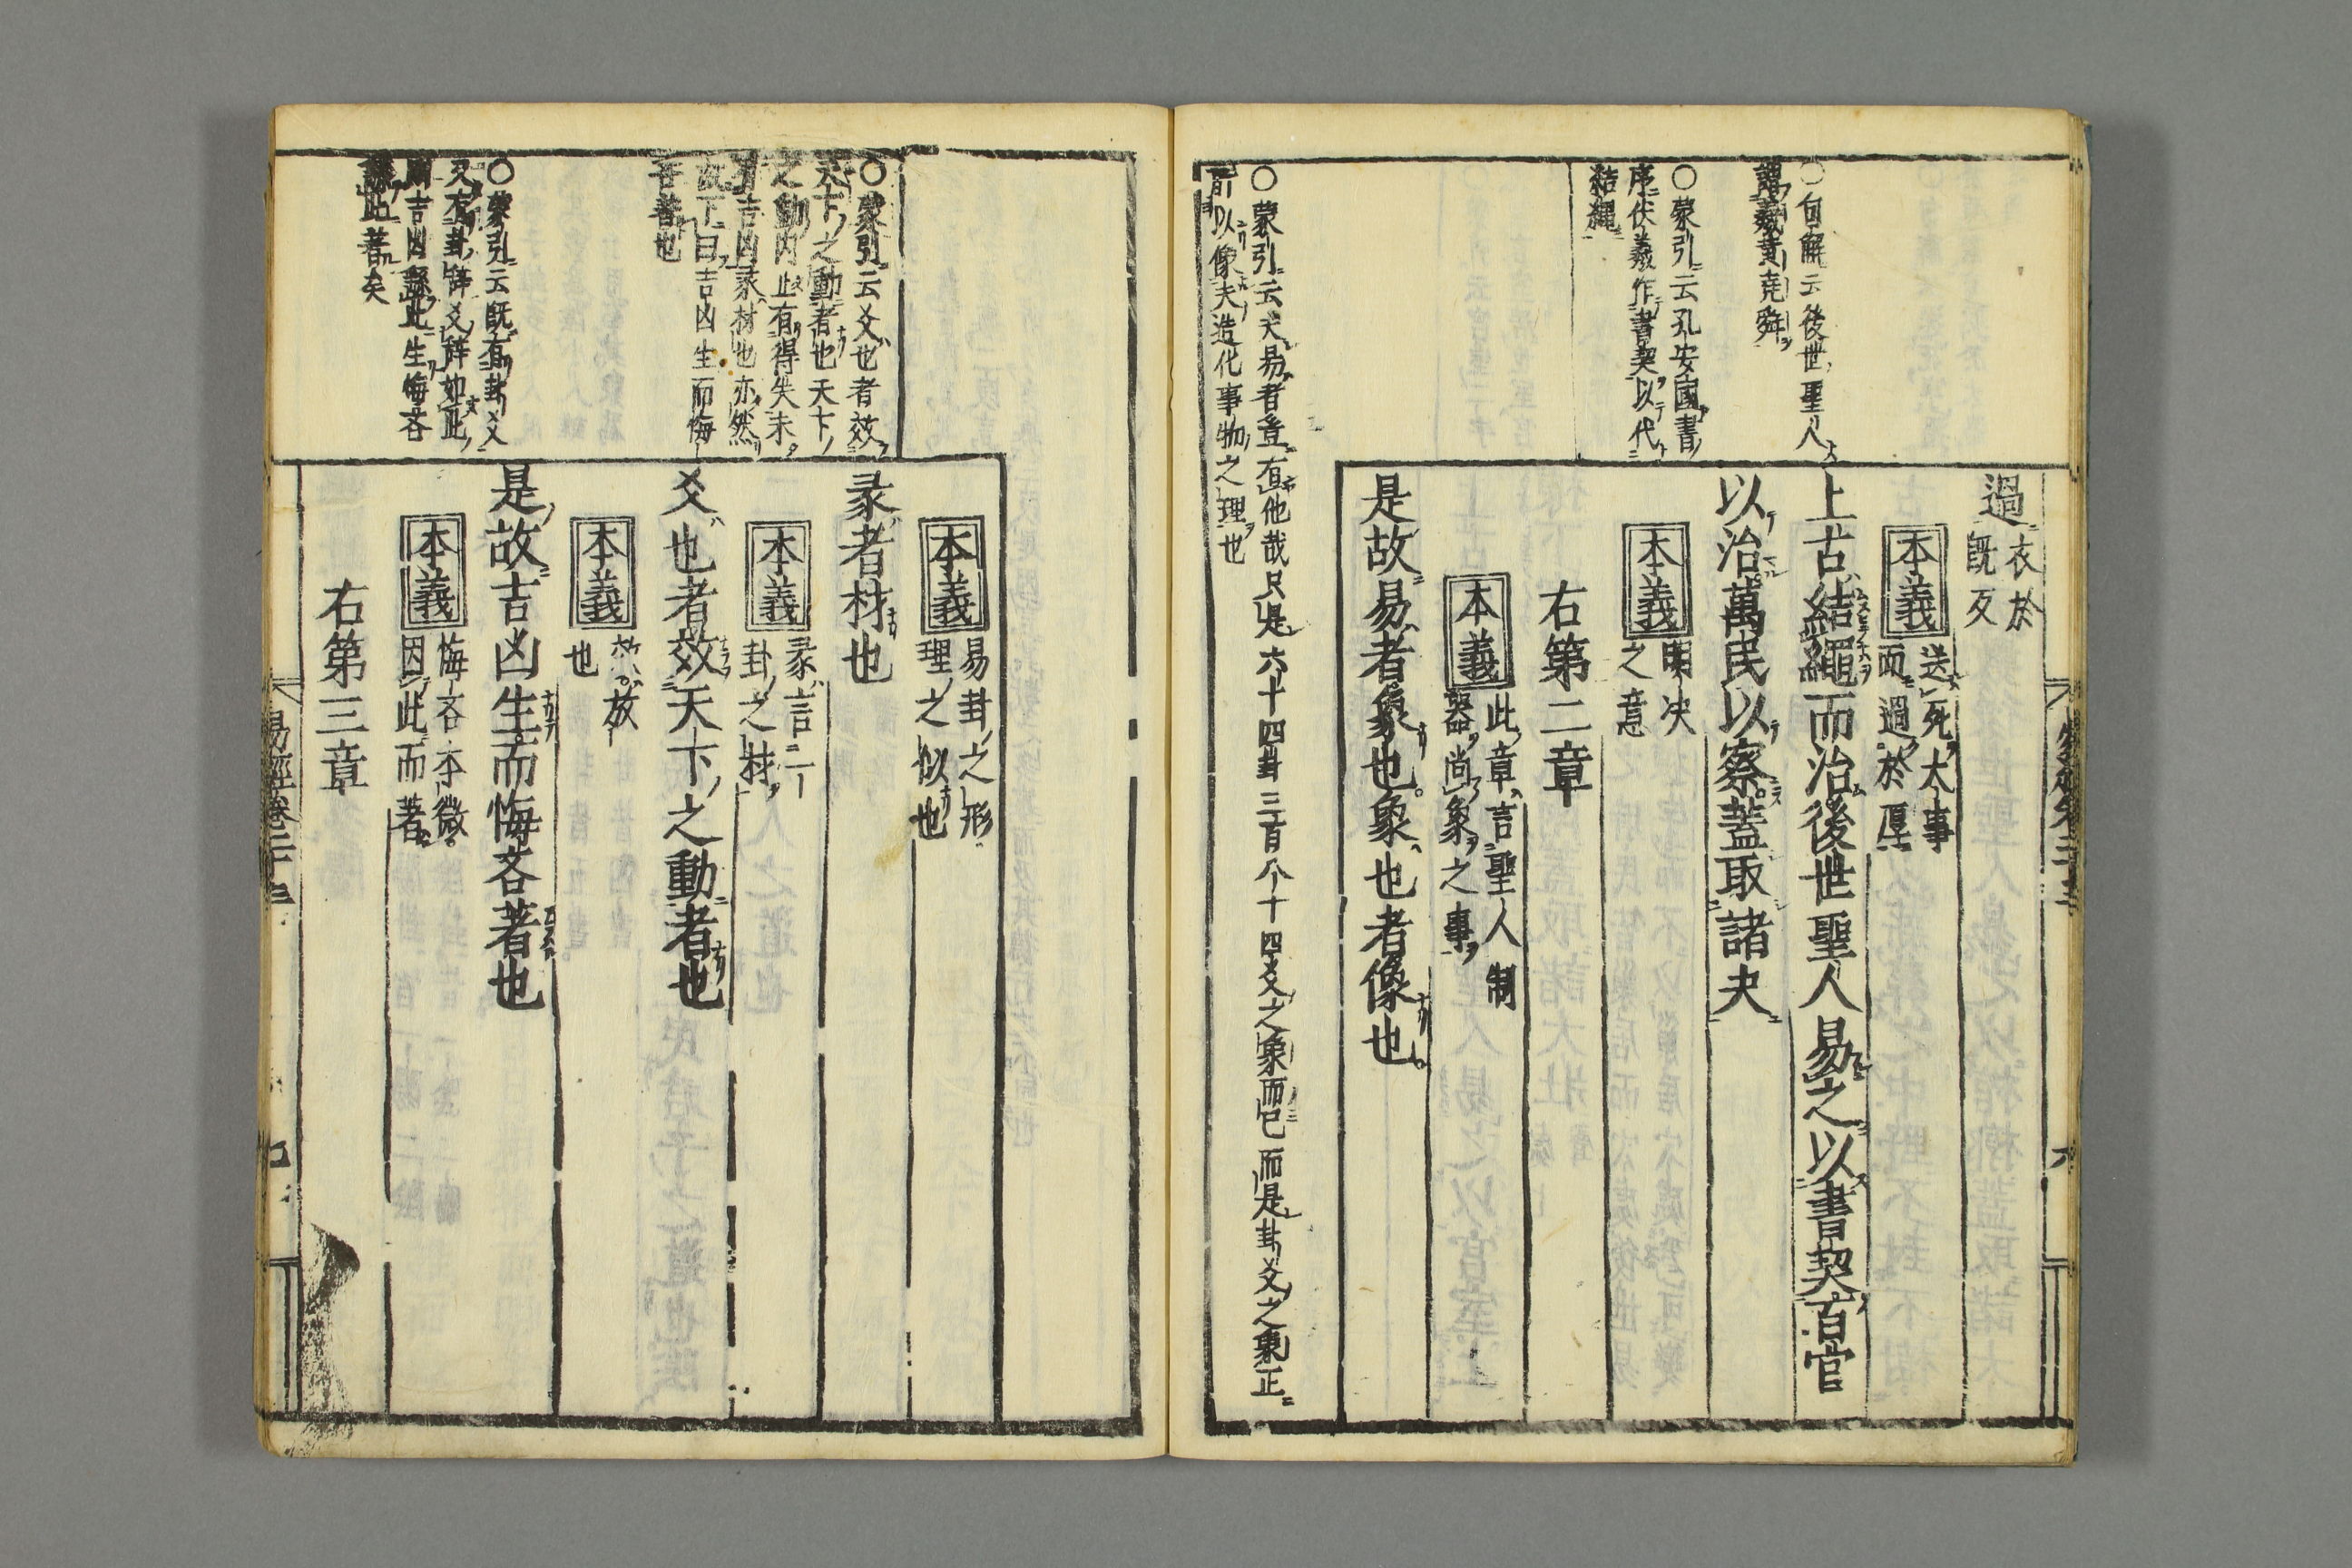 ○句解云後世聖人
謂羲黄尭舜
○蒙引云孔安國書
序伏羲作書契以代
結繩
過 衣於
既反
本義 送死大事
而過於厚
上古結繩而治後世聖人易之以書契百官
以治萬民以察蓋取諸夬
本義 明决
之意
右第二章
本義 此章言聖人制
器尚象之事
是故易者象也象也者像也
○蒙引云夫易者豈有他哉只是六十四卦三百八十四爻之象而已而是卦爻之象正
前以像夫造化事物之理也
○蒙引云爻也者效
天下之動者也天下
之動内止有得失未
有吉凶彖材也亦然
故下曰吉凶生而悔
吝著也
○蒙引云既有卦爻
又有卦辞爻辞如此
則吉凶繇此生悔吝
繇此著矣
本義 易卦之形
理之似也
彖者材也
本義 彖言一
卦之材
爻也者效天下之動者也
本義 效放
也
是故吉凶生而悔吝著也
本義 悔吝本微
因此而著
右第三章
易經卷二十三